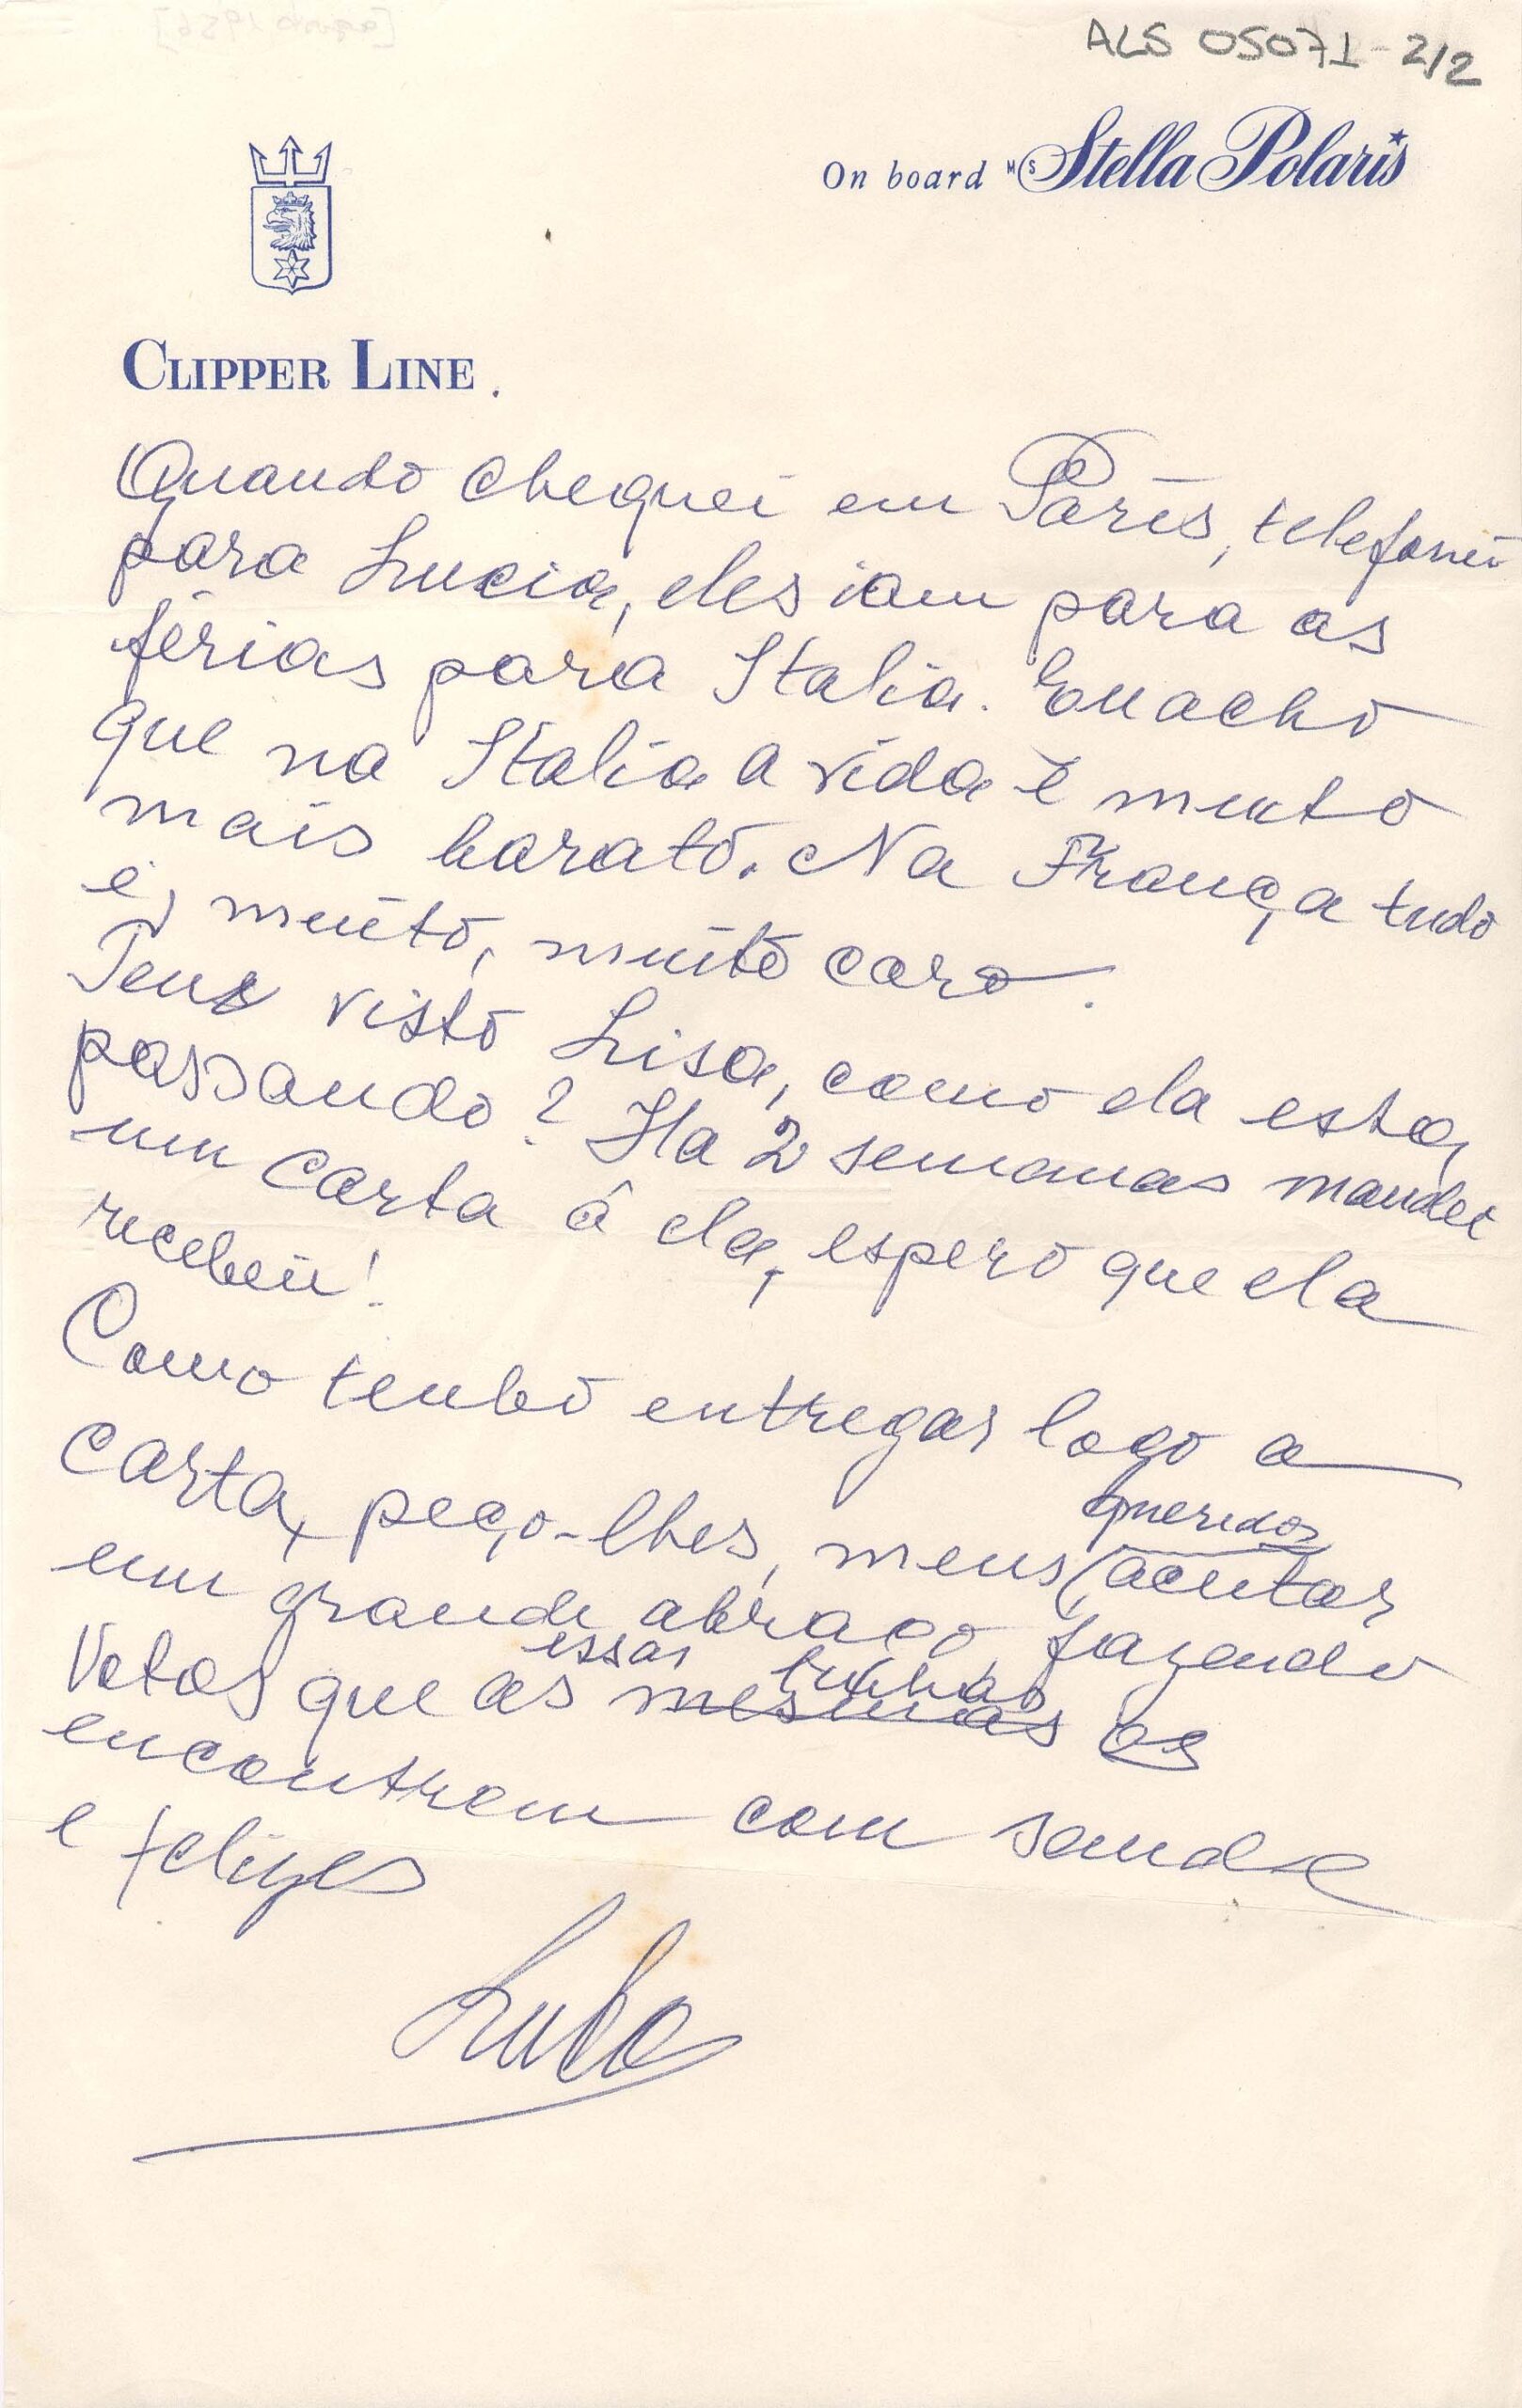 ALS 05071-2/2
On board M/S Stella Polaris
CLIPPER LINE
Quando cheguei em Paris, telefonei
para Lucia, eles iam para as
férias para Italia. Eu acho
que na Italia a vida é muito
mais barato. Na França tudo
é, muito, muito caro.
Tens visto Lisa, como ela esta
passando? Ha 2 semanas mandei
um carta â ela, espero que ela
recebeu!
Como tenho entregar logo a
carta, peço-lhes, meus queridos aceitar
um grande abraço fazendo
Votos que as mesmas essas linhas os
encontrem com saude
e felizes
Luba